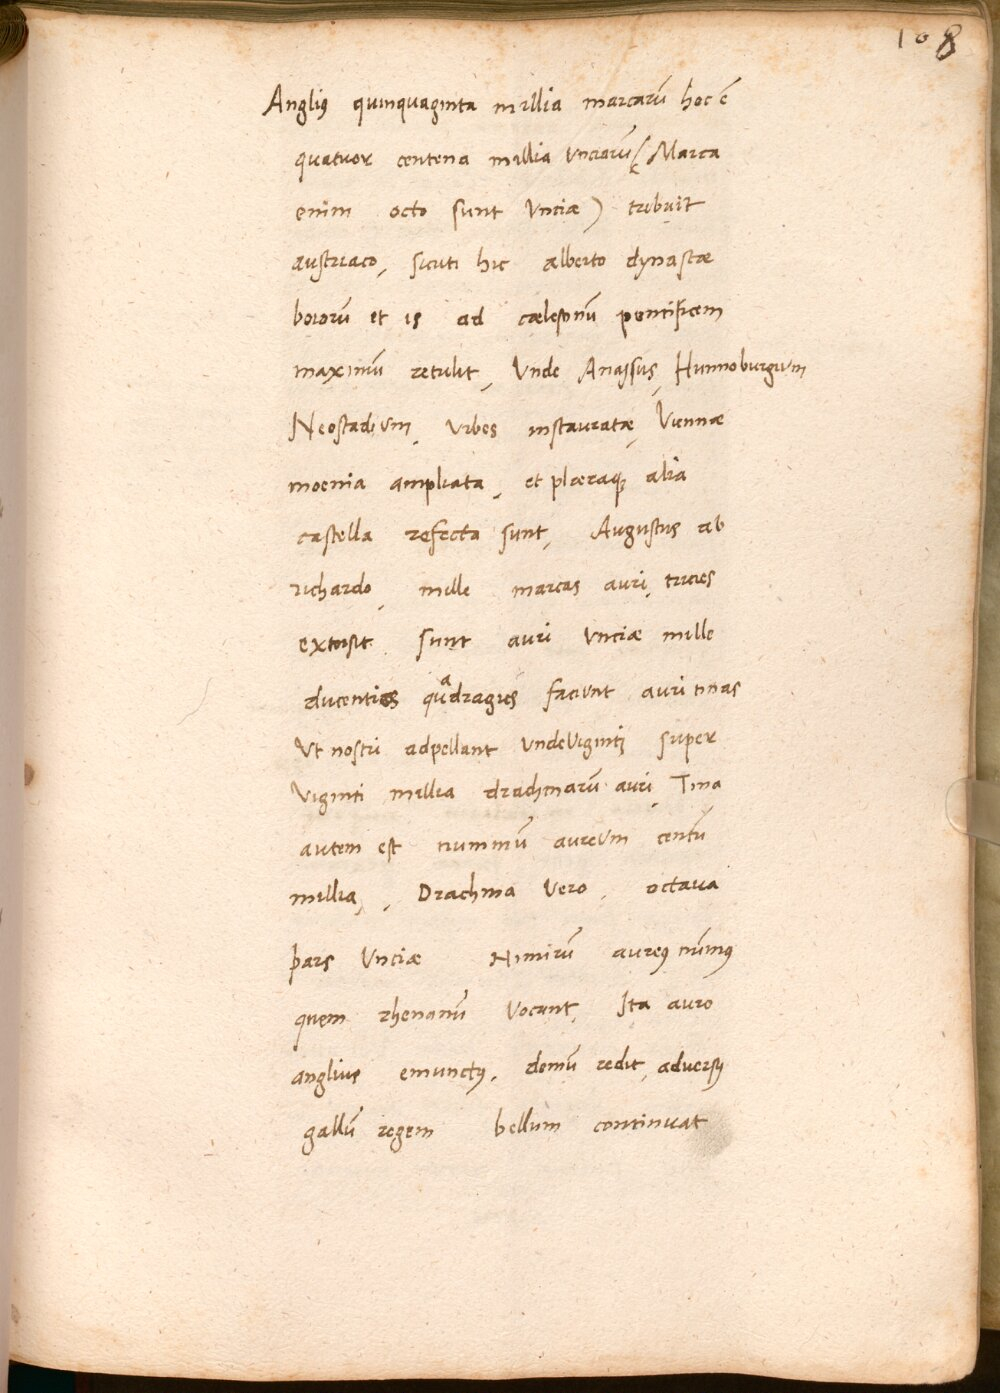 108
Angliꝰ quinquaginta millia marcarū hoc ē
quatuor centena millia Vnciarū ( Marca
enim octo sunt Vnciæ ) tribuit
austriaco, sicuti hic alberto dynastæ
boiorū et is ad cælestinū pontificem
maximū retulit, Vnde Anassus, Hunnoburgum
Neostadium, Vrbes instauratæ, Viennæ
moenia ampliata, et plæraqꝫ alia
castella refecta sunt, Augustus ab
richardo, mille marcas auri, tricies
extorsit sunt auri Vnciæ mille
ducenties quadragies faciunt auri tinas
Vt nostri adpellant Vndeviginti super
Viginti millia drachmarū auri, Tina
autem est nummū aureum centū
millia, , Drachma Vero , octaua
pars Vnciæ Nimirū aureꝰ nūmꝰ
quem rhenanū Vocant, Ita auro
anglius emunctꝰ, domū redit, adversꝰ
gallū regem bellum continuat